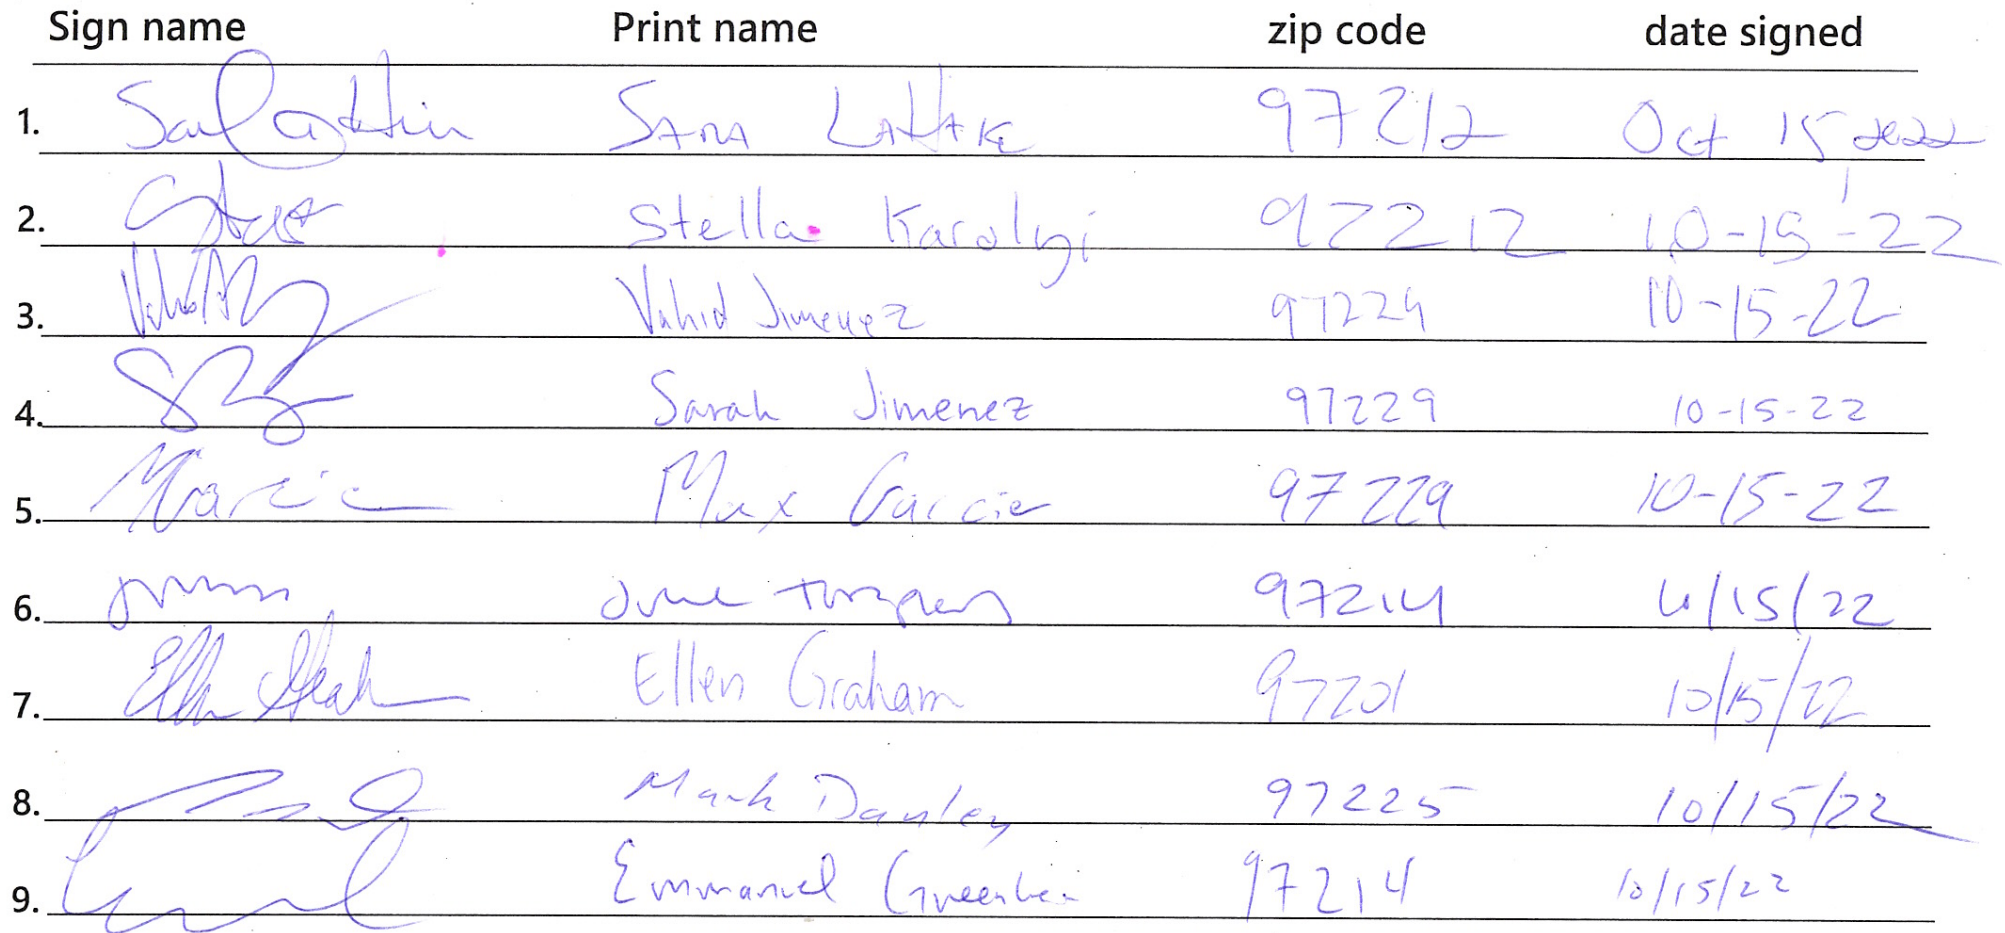 Sign name Print name zip code date signed
1. Sara 97212 Oct 15 2022
2. Stella Karolyi 97212 10-15-22
3. Vahid Jimenez 97229 10-15-22
4. Sarah Jimenez 97229 10-15-22
5. MGarcia Max Garcia 97229 10-15-22
6. June 97214 15/22
7. Ellen Graham 97201 10/15/22
8. Mark Danley 97225 10/15/22
9. Emmanuel 97214 10/15/22